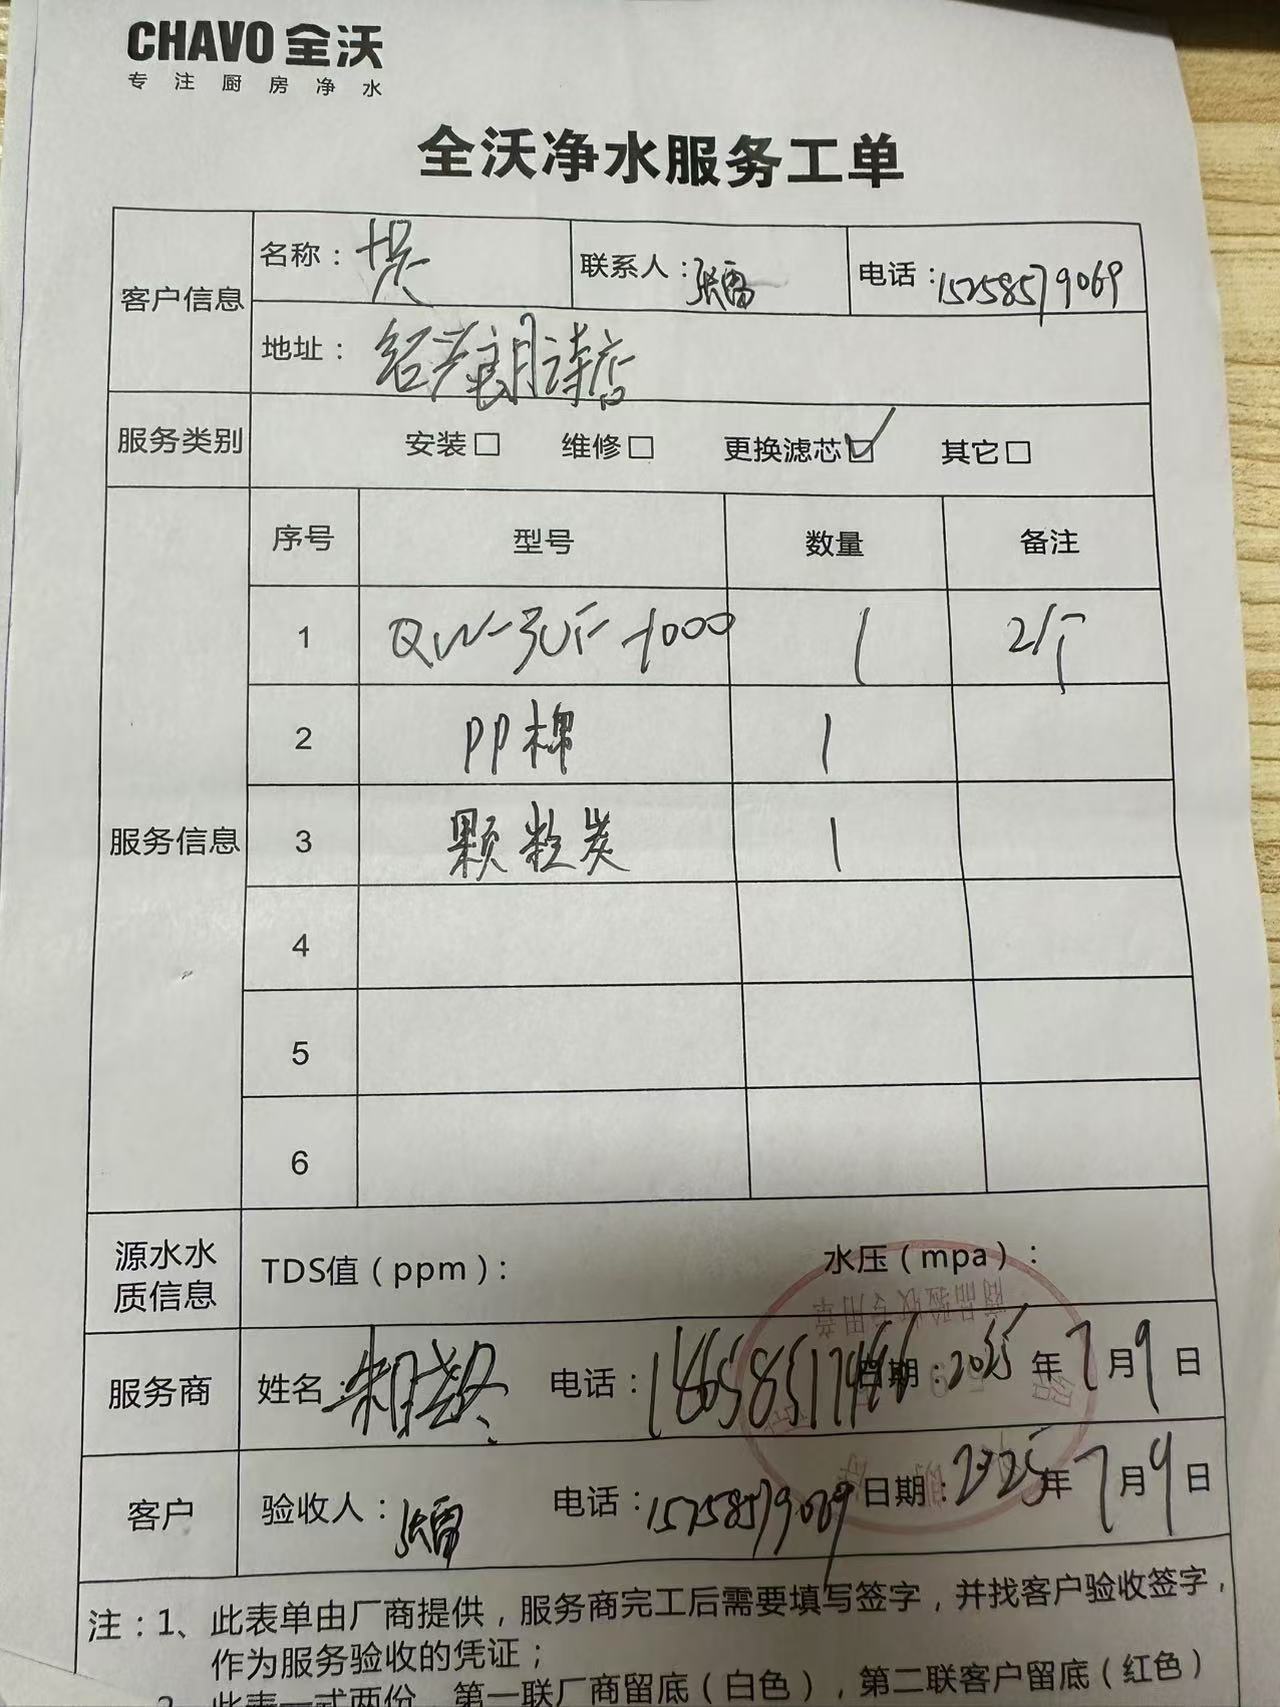 CHAVO 全沃
专注厨房净水
全沃净水服务工单
客户信息
名称：
联系人：张雷
电话：15258579069
地址：绍兴朗诗店
服务类别
安装□ 维修□ 更换滤芯☑ 其它□
服务信息
序号 型号 数量 备注
1 QW-3UF-1000 1 2个
2 PP棉 1
3 颗粒炭 1
4
5
6
源水水质信息
TDS值（ppm）： 水压（mpa）：
商品验收专用章
服务商
姓名： 电话： 日期：2025年7月9日
客户
验收人：张雷 电话：15258579069 日期：2025年7月9日
注：1、此表单由厂商提供，服务商完工后需要填写签字，并找客户验收签字，
作为服务验收的凭证；
2、此表一式两份，第一联厂商留底（白色），第二联客户留底（红色）